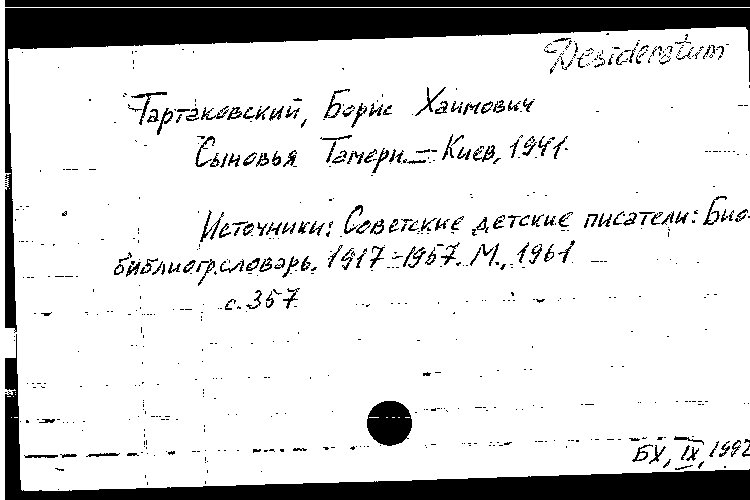 Desideratum
Тартаковский, Борис Хаимович
Сыновья Тамери. — Киев, 1941.
Источники: Советские детские писатели: Био-
библиогр.словарь. 1917-1957. М., 1961
с. 357
БХ, IX, 1992